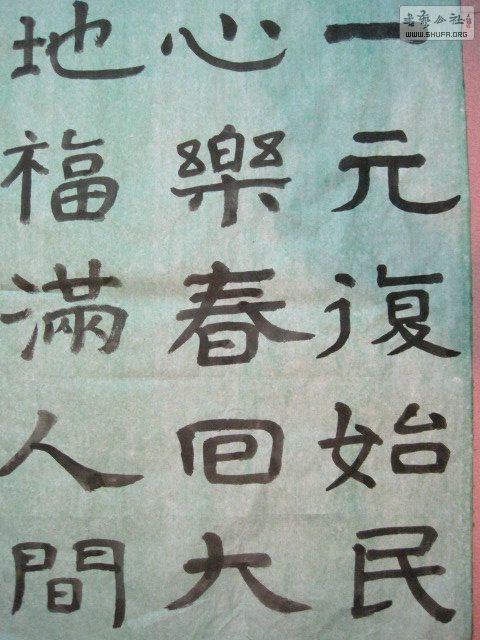 一元復始民
心樂春回大
地福滿人間
書藝公社
WWW.SHUFA.ORG